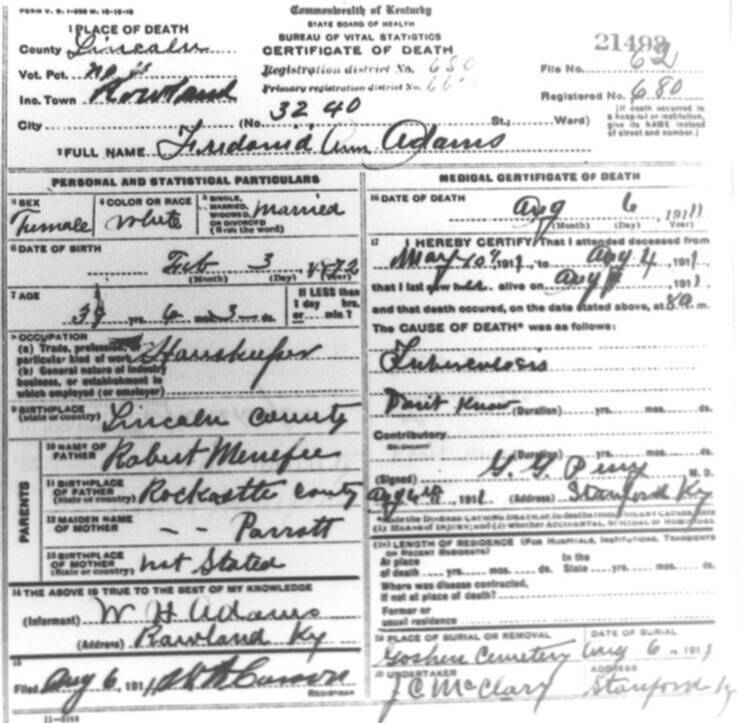 Commonwealth of Kentucky
STATE BOARD OF HEALTH
BUREAU OF VITAL STATISTICS
CERTIFICATE OF DEATH
1 PLACE OF DEATH
County Lincoln
Vot. Pct.
Inc. Town Rowland
City
(No. 3240 St.; Ward)
Registration district No. 680
Primary registration district No.
21493
File No. 62
Registered No. 680
[If death occurred in a hospital or institution, give its NAME instead of street and number.]
2 FULL NAME Ann Adams
PERSONAL AND STATISTICAL PARTICULARS
3 SEX Female
4 COLOR OR RACE White
5 SINGLE, MARRIED, WIDOWED, OR DIVORCED (Write the word) Married
6 DATE OF BIRTH
Feb 3, 1872
(Month) (Day) (Year)
7 AGE
39 yrs. 6 mos. 3 ds.
If LESS than 1 day hrs. or min.?
8 OCCUPATION
(a) Trade, profession, particular kind of work
(b) General nature of industry business, or establishment in which employed (or employer)
9 BIRTHPLACE (State or country) Lincoln County
PARENTS
10 NAME OF FATHER Robert Menefee
11 BIRTHPLACE OF FATHER (State or country) Rockcastle County
12 MAIDEN NAME OF MOTHER -- Parrott
13 BIRTHPLACE OF MOTHER (State or country) not Stated
14 THE ABOVE IS TRUE TO THE BEST OF MY KNOWLEDGE
(Informant) W H Adams
(Address) Rowland Ky
15
Filed Aug 6, 1911
REGISTRAR
MEDICAL CERTIFICATE OF DEATH
16 DATE OF DEATH
Aug 6, 1911
(Month) (Day) (Year)
17 I HEREBY CERTIFY, That I attended deceased from
May 10th 1911, to Aug 4, 1911
that I last saw her alive on Aug 1911
and that death occured, on the date stated above, at 8 a m.
The CAUSE OF DEATH* was as follows:
Tuberculosis
Don't Know (Duration) yrs. mos. ds.
Contributory
(Duration) yrs. mos. ds.
(Signed) M. D.
Aug 1911 (Address) Stanford Ky
LENGTH OF RESIDENCE (FOR HOSPITALS, INSTITUTIONS, TRANSIENTS OR RECENT RESIDENTS)
At place of death yrs. mos. ds. In the State yrs. mos. ds.
Where was disease contracted, if not at place of death?
Former or usual residence
19 PLACE OF BURIAL OR REMOVAL Goshen Cemetery
DATE OF BURIAL Aug 6, 1911
20 UNDERTAKER J C McClary
ADDRESS Stanford Ky